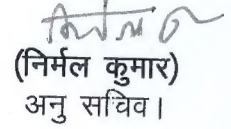 (निर्मल कुमार)
अनु सचिव।